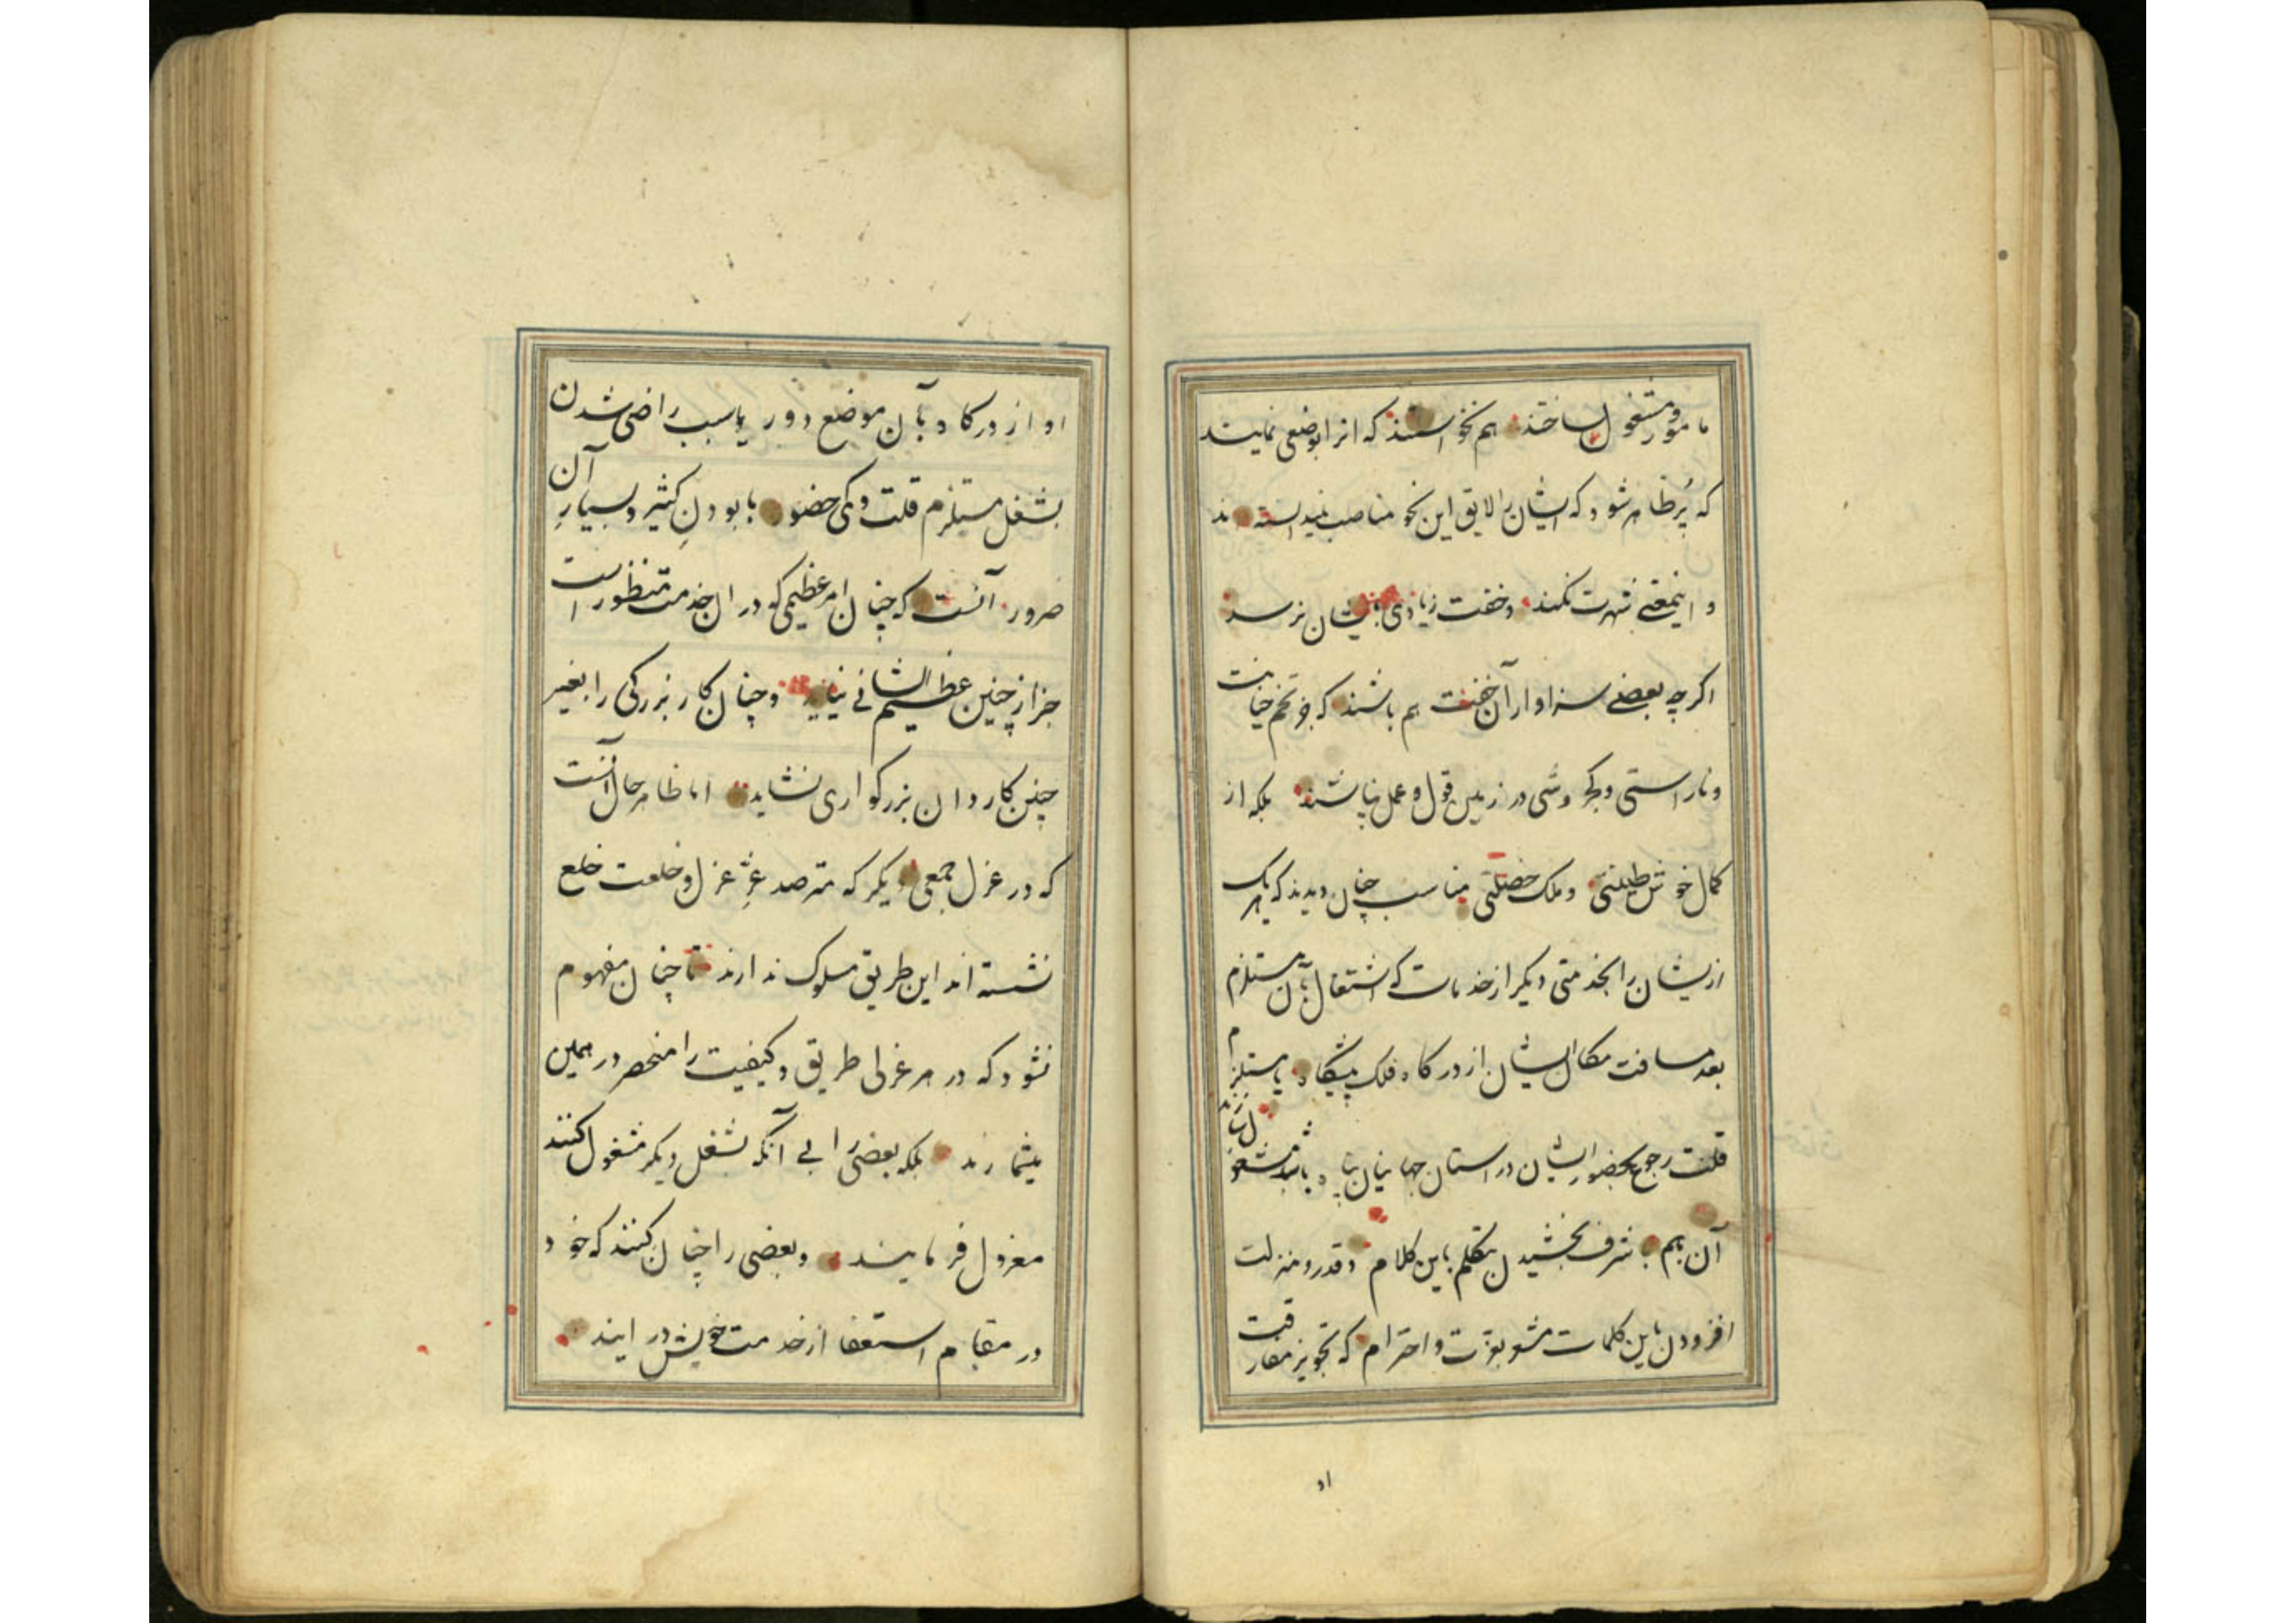 مامور و مشغول ساختند هم نخواستند که انرا بوضعی نمایند
که پُر ظاهر شود که ایشان را لایق این نحو مناصب ندانسته اند
و اینمعنی شهرت نکند و خفت زیادی بایشان نرسد
اکرچه بعضی سزاوار آن خفت هم باشند که جز تخم خیانت
و ناراستی و کجروشی در زمین قول و عمل نپاشند بلکه از
کمال خوش طینتی و ملک خصلتی مناسب چنان دیدند که هریک
ازیشان را بخدمتی دیکر از خدمات که اشتغال بآن مستلزم
بعد مسافت مکان ایشان از درکاه فلک پیشکاه یا مستلزم
قلت رجوع بحضور ایشان در استان جهانیان پناه باشد مشغول سازند
آن هم با شرف بخشیدن بتکلم باین کلام و قدر و منزلت
افزودن باین کلمات مشعر بعزت و احترام که تجویز مفارقت
او
او از درکاه بآن موضع دور یا سبب راضی شدن
بشغل مستلزم قلت و کمی حضور با بودن کثیر و بسیار آن
ضرور آنست که چنان امر عظیمی که در ان خدمت منظور است
جز از چنین عظیم الشانی نیاید و چنان کار بزرکی را بغیر
چنین کاردان بزرکواری نشاید اما ظاهر حال آنست
که در عزل جمعی دیکر که مترصد عزِّ عزل و خلعت خلع
نشسته اند این طریق مسلوک ندارند تا چنان مفهوم
نشود که در هر عزلی طریق و کیفیت را منحصر در همین
میشمارند بلکه بعضی را بی آنکه بشغل دیکر مشغول کنند
معزول فرمایند و بعضی را چنان کنند که خود
در مقام استعفا از خدمت خویش در ایند